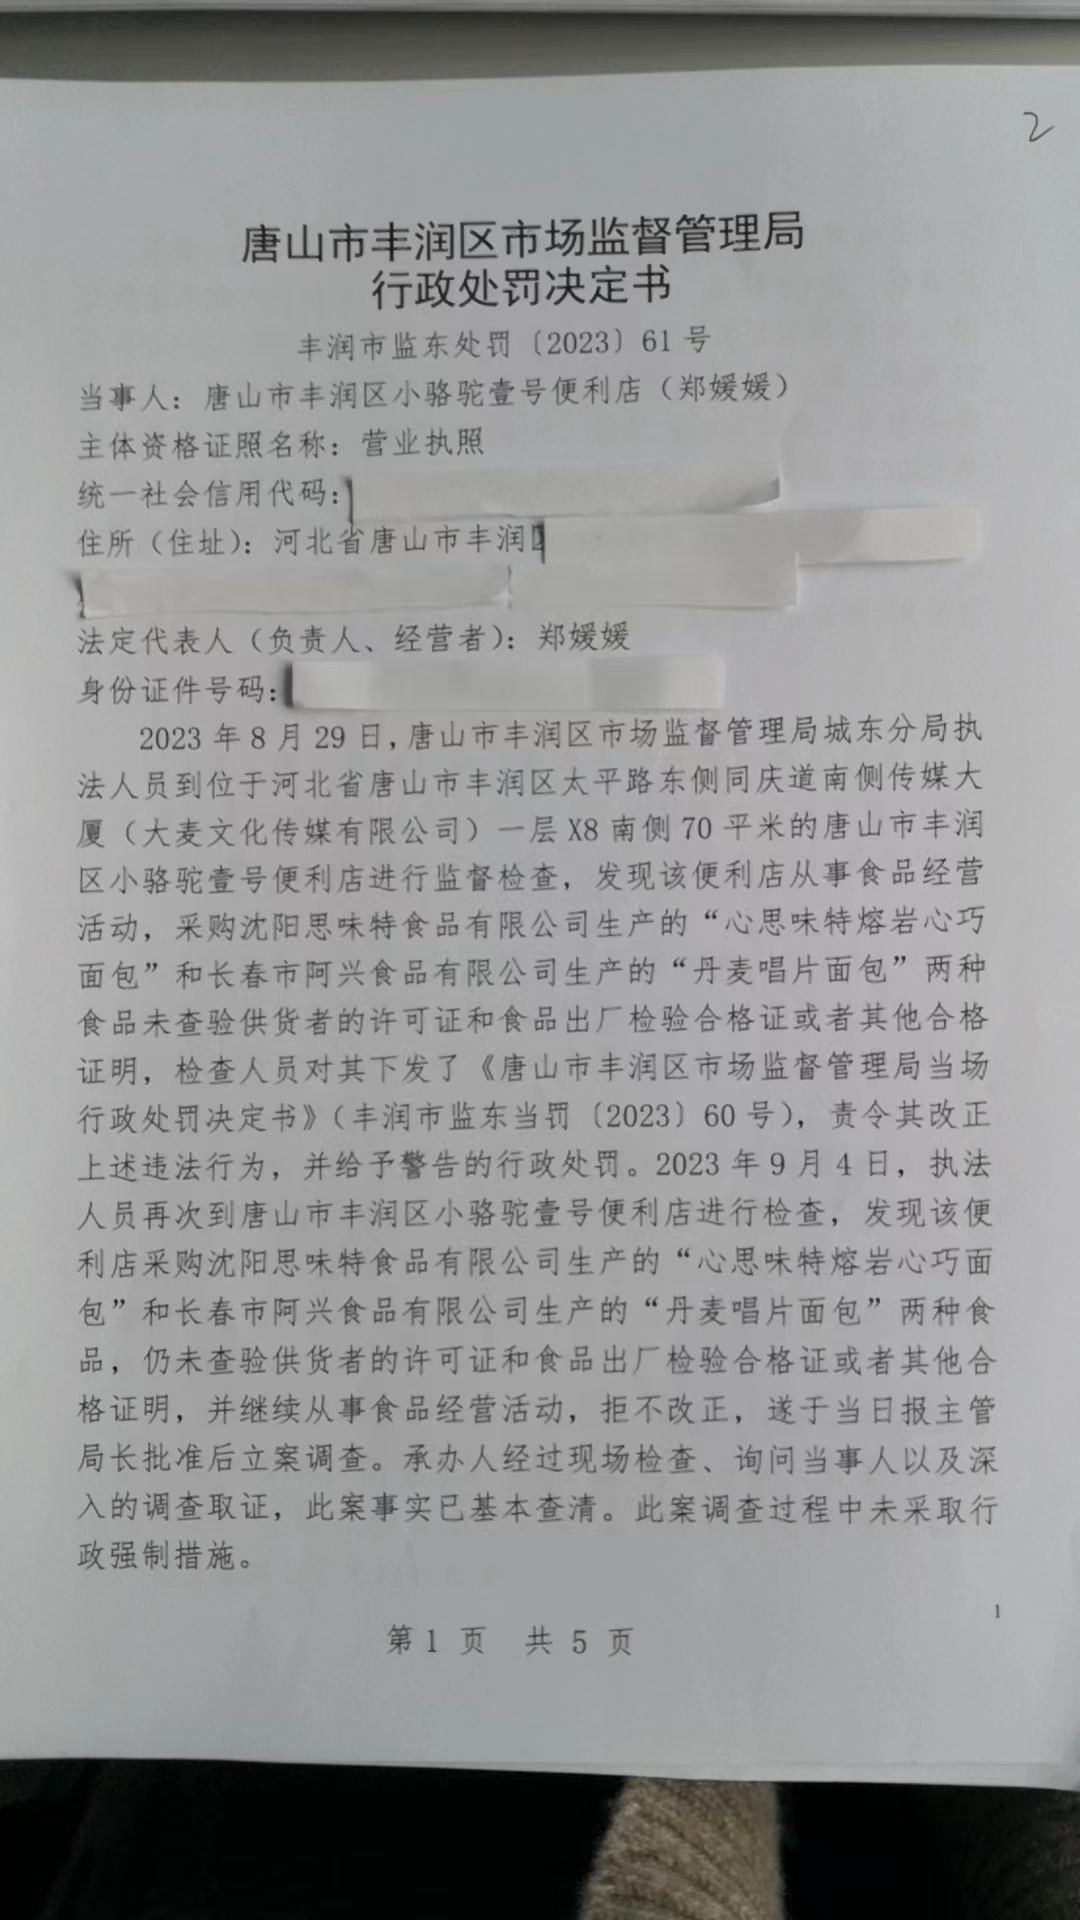 2
唐山市丰润区市场监督管理局
行政处罚决定书
丰润市监东处罚〔2023〕61号
当事人：唐山市丰润区小骆驼壹号便利店（郑媛媛）
主体资格证照名称：营业执照
统一社会信用代码：
住所（住址）：河北省唐山市丰润
法定代表人（负责人、经营者）：郑媛媛
身份证件号码：
2023年8月29日，唐山市丰润区市场监督管理局城东分局执
法人员到位于河北省唐山市丰润区太平路东侧同庆道南侧传媒大
厦（大麦文化传媒有限公司）一层X8南侧70平米的唐山市丰润
区小骆驼壹号便利店进行监督检查，发现该便利店从事食品经营
活动，采购沈阳思味特食品有限公司生产的“心思味特熔岩心巧
面包”和长春市阿兴食品有限公司生产的“丹麦唱片面包”两种
食品未查验供货者的许可证和食品出厂检验合格证或者其他合格
证明，检查人员对其下发了《唐山市丰润区市场监督管理局当场
行政处罚决定书》（丰润市监东当罚〔2023〕60号），责令其改正
上述违法行为，并给予警告的行政处罚。2023年9月4日，执法
人员再次到唐山市丰润区小骆驼壹号便利店进行检查，发现该便
利店采购沈阳思味特食品有限公司生产的“心思味特熔岩心巧面
包”和长春市阿兴食品有限公司生产的“丹麦唱片面包”两种食
品，仍未查验供货者的许可证和食品出厂检验合格证或者其他合
格证明，并继续从事食品经营活动，拒不改正，遂于当日报主管
局长批准后立案调查。承办人经过现场检查、询问当事人以及深
入的调查取证，此案事实已基本查清。此案调查过程中未采取行
政强制措施。
1
第1页 共5页